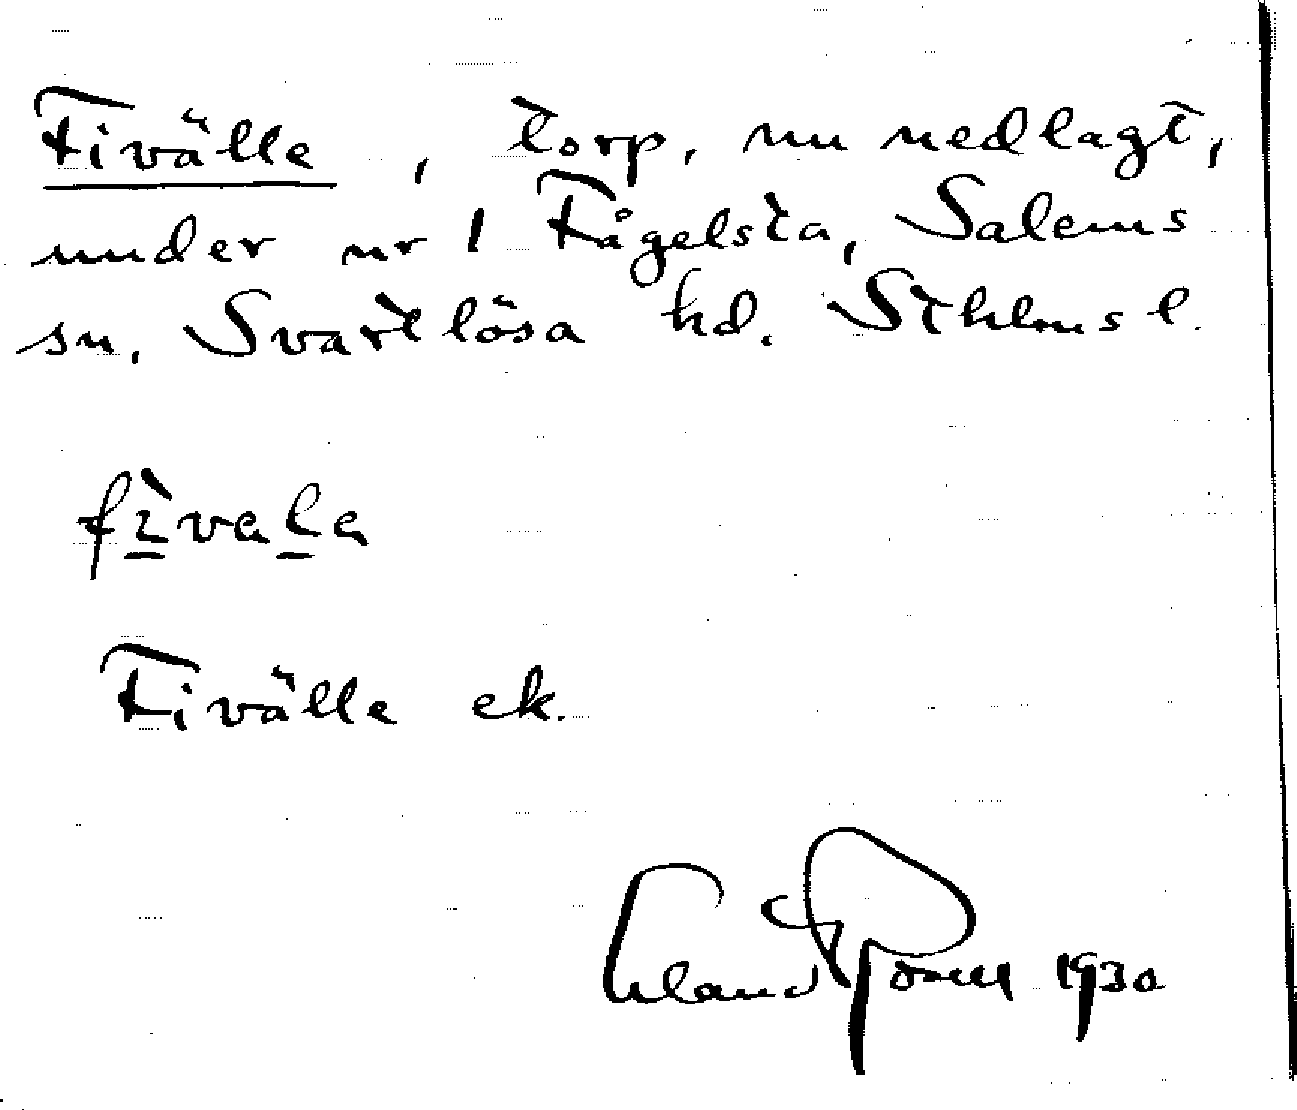 Fivälle, torp, nu nedlagt,
under nr 1 Fågelsta, Salems
sn, Svartlösa hd. Sthlms l.
Fivälle ek.
Erland Rosell 1930